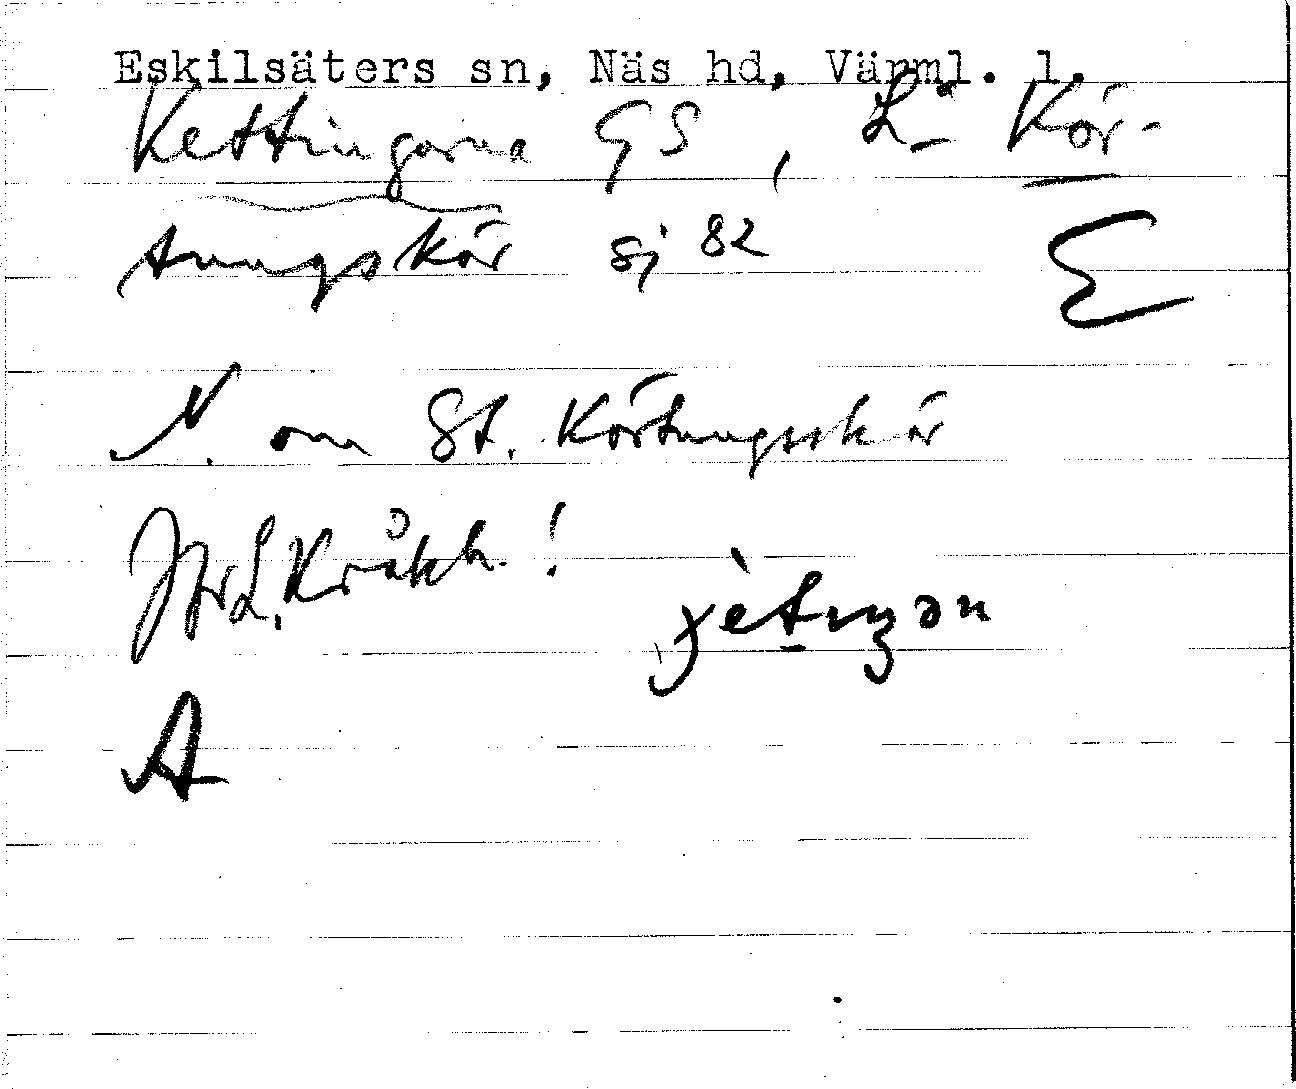 Eskilsäters sn, Näs hd, Värml. l.
Kettingarna GS, L. Kör-
tungskär sj 82
E
N. om St. Körtungsskär
Jfr L. Kråkh. !
A